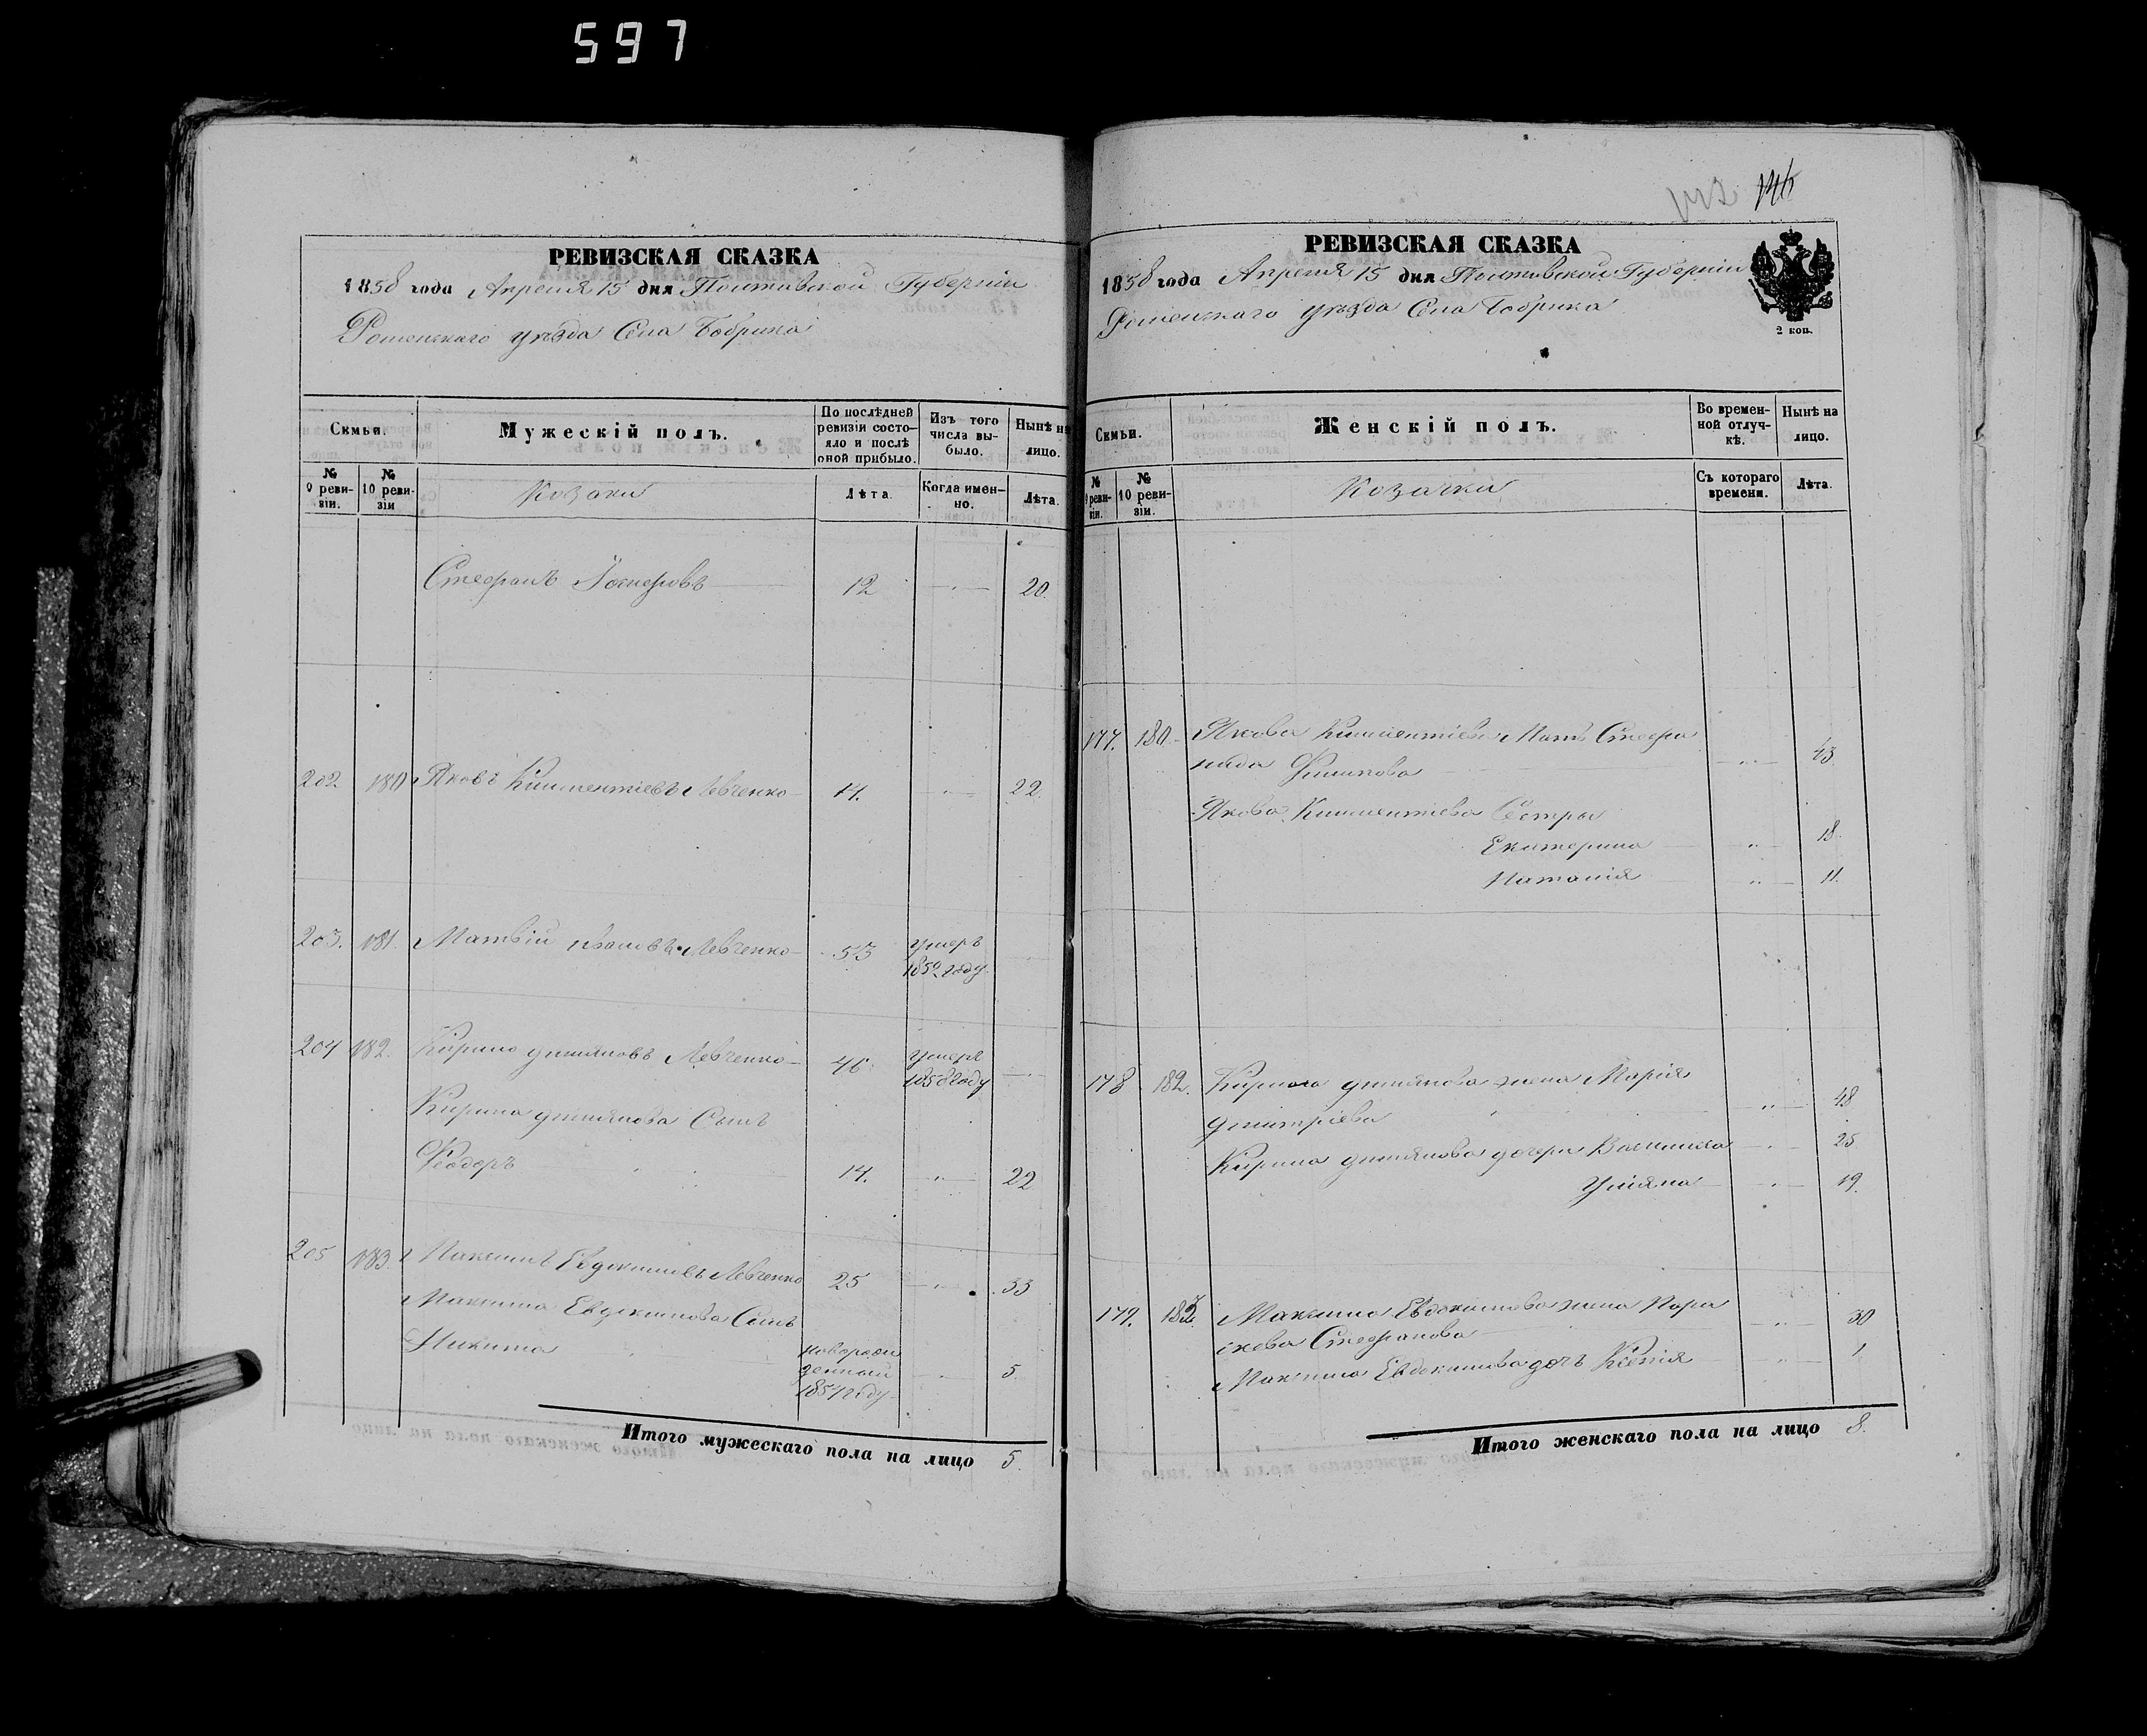 597
146
РЕВИЗСКАЯ СКАЗКА
1858 года Апреля 15 дня Полтавской Губерніи
Роменскаго уѣзда Села Бобрика
Семьи.
Мужескій полъ.
По послѣдней ревизіи состояло и послѣ оной прибыло.
Изъ того числа выбыло.
Нынѣ на лицо.
№ 9 ревизіи.
№ 10 ревизіи
Козаки
Лѣта.
Когда именно.
Лѣта.
Стефанъ 12 20.
202 180 Яковъ Климентіевъ Левченко 14. 22.
203. 181. Матвій Ивановъ Левченко 53 умеръ
году
204 182. Кирило Демяновъ Левченко 46 умеръ
году
Кирила Демянова Сынъ
Феодоръ 14. 22
205 183. Максимъ Евдокимовъ Левченко 25 33
Максима Евдокимова Сынъ
Никита новорож
денный 5.
году
Итого мужескаго пола на лицо 5.
РЕВИЗСКАЯ СКАЗКА
1858 года Апреля 15 дня Полтавской Губерніи
Роменскаго уѣзда Села Бобрика
2 коп.
Семьи.
Женскій полъ.
Во временной отлучкѣ.
Нынѣ на лицо.
№ 9 ревизіи.
№ 10 ревизіи.
Козачки
Съ котораго времени.
Лѣта.
177. 180. Якова Климентіева Мать Стефа
нида 43
Якова Климентіева Сестры
Екатерина 18.
Наталія 11.
178 182. Кирила Демянова жена Марія
Дмитріева 48
Кирила Демянова дочери Василиса 25
Уліяна 19.
179. 183. Максима Евдокимова жена Пара
скева Стефанова 30
Максима Евдокимова дочь Ксенія 1
Итого женскаго пола на лицо 8.